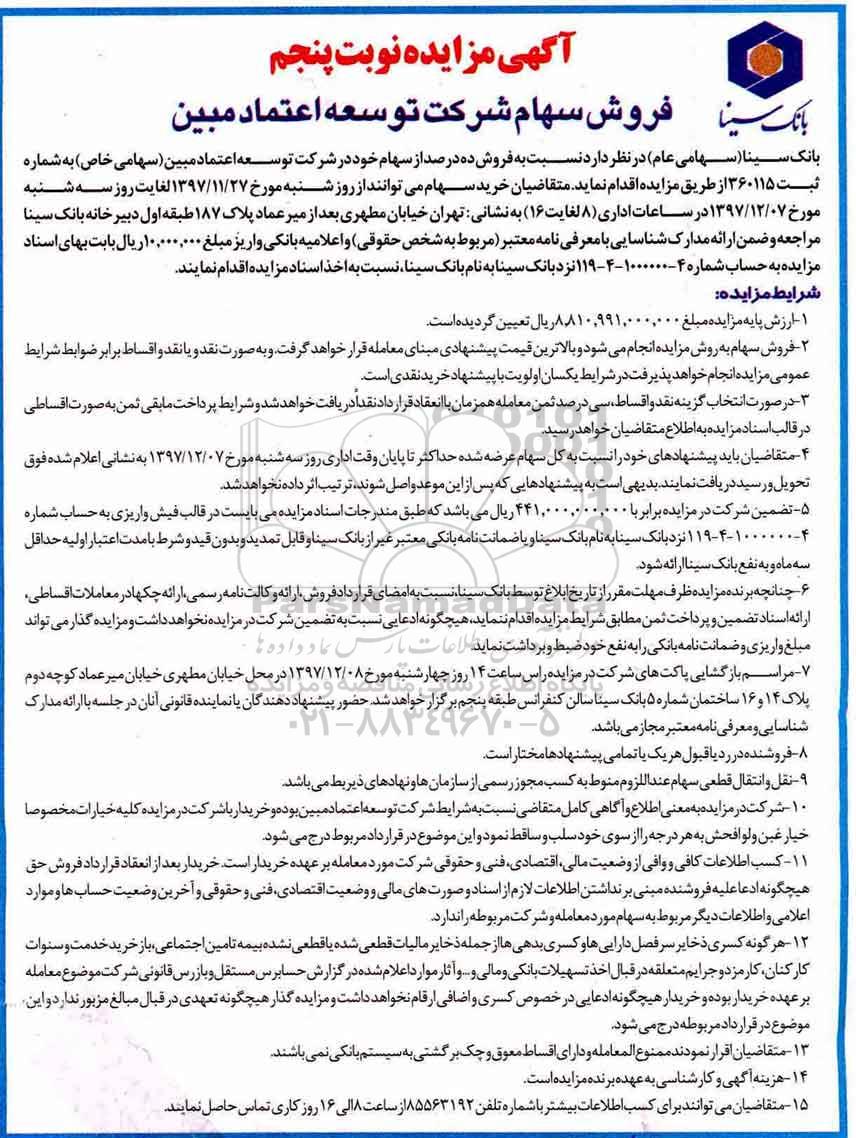 آگهی مزایده نوبت پنجم
بانک سینا
فروش سهام شرکت توسعه اعتماد مبین
بانک سینا (سهامی عام) در نظر دارد نسبت به فروش ده درصد از سهام خود در شرکت توسعه اعتماد مبین (سهامی خاص) به شماره
ثبت ۳۶۰۱۱۵ از طریق مزایده اقدام نماید. متقاضیان خرید سهام می توانند از روز شنبه مورخ ۱۳۹۷/۱۱/۲۷ لغایت روز سه شنبه
مورخ ۱۳۹۷/۱۲/۰۷ در ساعات اداری (۸ لغایت ۱۶) به نشانی: تهران خیابان مطهری بعد از میرعماد پلاک ۱۸۷ طبقه اول دبیرخانه بانک سینا
مراجعه و ضمن ارائه مدارک شناسایی با معرفی نامه معتبر (مربوط به شخص حقوقی) و اعلامیه بانکی واریز مبلغ ۱۰,۰۰۰,۰۰۰ ریال بابت بهای اسناد
مزایده به حساب شماره ۴-۱۰۰۰۰۰۰-۴-۱۱۹ نزد بانک سینا به نام بانک سینا، نسبت به اخذ اسناد مزایده اقدام نمایند.
شرایط مزایده:
۱-ارزش پایه مزایده مبلغ ۸,۸۱۰,۹۹۱,۰۰۰,۰۰۰ ریال تعیین گردیده است.
۲-فروش سهام به روش مزایده انجام می شود و بالاترین قیمت پیشنهادی مبنای معامله قرار خواهد گرفت. و به صورت نقد و یا نقد و اقساط برابر ضوابط شرایط
عمومی مزایده انجام خواهد پذیرفت در شرایط یکسان اولویت با پیشنهاد خرید نقدی است.
۳-در صورت انتخاب گزینه نقد و اقساط، سی درصد ثمن معامله همزمان با انعقاد قرارداد نقداً دریافت خواهد شد و شرایط پرداخت مابقی ثمن به صورت اقساطی
در قالب اسناد مزایده به اطلاع متقاضیان خواهد رسید.
۴-متقاضیان باید پیشنهادهای خود را نسبت به کل سهام عرضه شده حداکثر تا پایان وقت اداری روز سه شنبه مورخ ۱۳۹۷/۱۲/۰۷ به نشانی اعلام شده فوق
تحویل و رسید دریافت نمایند. بدیهی است به پیشنهادهایی که پس از این موعد واصل شوند، ترتیب اثر داده نخواهد شد.
۵-تضمین شرکت در مزایده برابر با ۴۴۱,۰۰۰,۰۰۰,۰۰۰ ریال می باشد که طبق مندرجات اسناد مزایده می بایست در قالب فیش واریزی به حساب شماره
۴-۱۰۰۰۰۰۰-۴-۱۱۹ نزد بانک سینا به نام بانک سینا و یا ضمانت نامه بانکی معتبر غیر از بانک سینا و قابل تمدید و بدون قید و شرط با مدت اعتبار اولیه حداقل
سه ماه و به نفع بانک سینا ارائه شود.
۶-چنانچه برنده مزایده ظرف مهلت مقرر از تاریخ ابلاغ توسط بانک سینا، نسبت به امضای قرارداد فروش، ارائه وکالت نامه رسمی، ارائه چکها در معاملات اقساطی،
ارائه اسناد تضمین و پرداخت ثمن مطابق شرایط مزایده اقدام ننماید، هیچگونه ادعایی نسبت به تضمین شرکت در مزایده نخواهد داشت و مزایده گذار می تواند
مبلغ واریزی و ضمانت نامه بانکی را به نفع خود ضبط و برداشت نماید.
۷-مراسم بازگشایی پاکت های شرکت در مزایده راس ساعت ۱۴ روز چهارشنبه مورخ ۱۳۹۷/۱۲/۰۸ در محل خیابان مطهری خیابان میرعماد کوچه دوم
پلاک ۱۴ و ۱۶ ساختمان شماره ۵ بانک سینا سالن کنفرانس طبقه پنجم برگزار خواهد شد. حضور پیشنهاد دهندگان یا نماینده قانونی آنان در جلسه با ارائه مدارک
شناسایی و معرفی نامه معتبر مجاز می باشد.
۸-فروشنده در رد یا قبول هر یک یا تمامی پیشنهادها مختار است.
۹-نقل و انتقال قطعی سهام عنداللزوم منوط به کسب مجوز رسمی از سازمان ها و نهادهای ذیربط می باشد.
۱۰-شرکت در مزایده به معنی اطلاع و آگاهی کامل متقاضی نسبت به شرایط شرکت توسعه اعتماد مبین بوده و خریدار با شرکت در مزایده کلیه خیارات مخصوصا
خیار غبن ولو افحش به هر درجه را از سوی خود سلب و ساقط نمود و این موضوع در قرارداد مربوط درج می شود.
۱۱-کسب اطلاعات کافی و وافی از وضعیت مالی، اقتصادی، فنی و حقوقی شرکت مورد معامله بر عهده خریدار است. خریدار بعد از انعقاد قرارداد فروش حق
هیچگونه ادعا علیه فروشنده مبنی بر نداشتن اطلاعات لازم از اسناد و صورت های مالی و وضعیت اقتصادی، فنی و حقوقی و آخرین وضعیت حساب ها و موارد
اعلامی و اطلاعات دیگر مربوط به سهام مورد معامله و شرکت مربوطه را ندارد.
۱۲-هرگونه کسری ذخایر سرفصل دارایی ها و کسری بدهی ها از جمله ذخایر مالیات قطعی شده یا قطعی نشده بیمه تامین اجتماعی، بازخرید خدمت و سنوات
کارکنان، کارمزد و جرایم متعلقه در قبال اخذ تسهیلات بانکی و مالی و... و آثار موارد اعلام شده در گزارش حسابرس مستقل و بازرس قانونی شرکت موضوع معامله
بر عهده خریدار بوده و خریدار هیچگونه ادعایی در خصوص کسری و اضافی ارقام نخواهد داشت و مزایده گذار هیچگونه تعهدی در قبال مبالغ مزبور ندارد و این
موضوع در قرارداد مربوطه درج می شود.
۱۳-متقاضیان اقرار نمودند ممنوع المعامله و دارای اقساط معوق و چک برگشتی به سیستم بانکی نمی باشند.
۱۴-هزینه آگهی و کارشناسی به عهده برنده مزایده است.
۱۵-متقاضیان می توانند برای کسب اطلاعات بیشتر با شماره تلفن ۸۵۵۶۳۱۹۲ از ساعت ۸ الی ۱۶ روز کاری تماس حاصل نمایند.
ParsNamadData
پایگاه اطلاع رسانی مناقصه و مزایده
۰۲۱-۸۸۳۴۹۶۷۰-۵